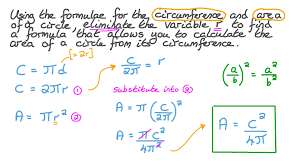 Using the formulae for the circumference and area
of a circle, eliminate the variable r to find
a formula that allows you to calculate the
area of a circle from its circumference.
[=2r]
C = πd
C = 2πr ①
A = πr² ②
C/2π = r
substitute into ②
A = π(C/2π)²
A = πC²/4π²
(a/b)² = a²/b²
A = C²/4π